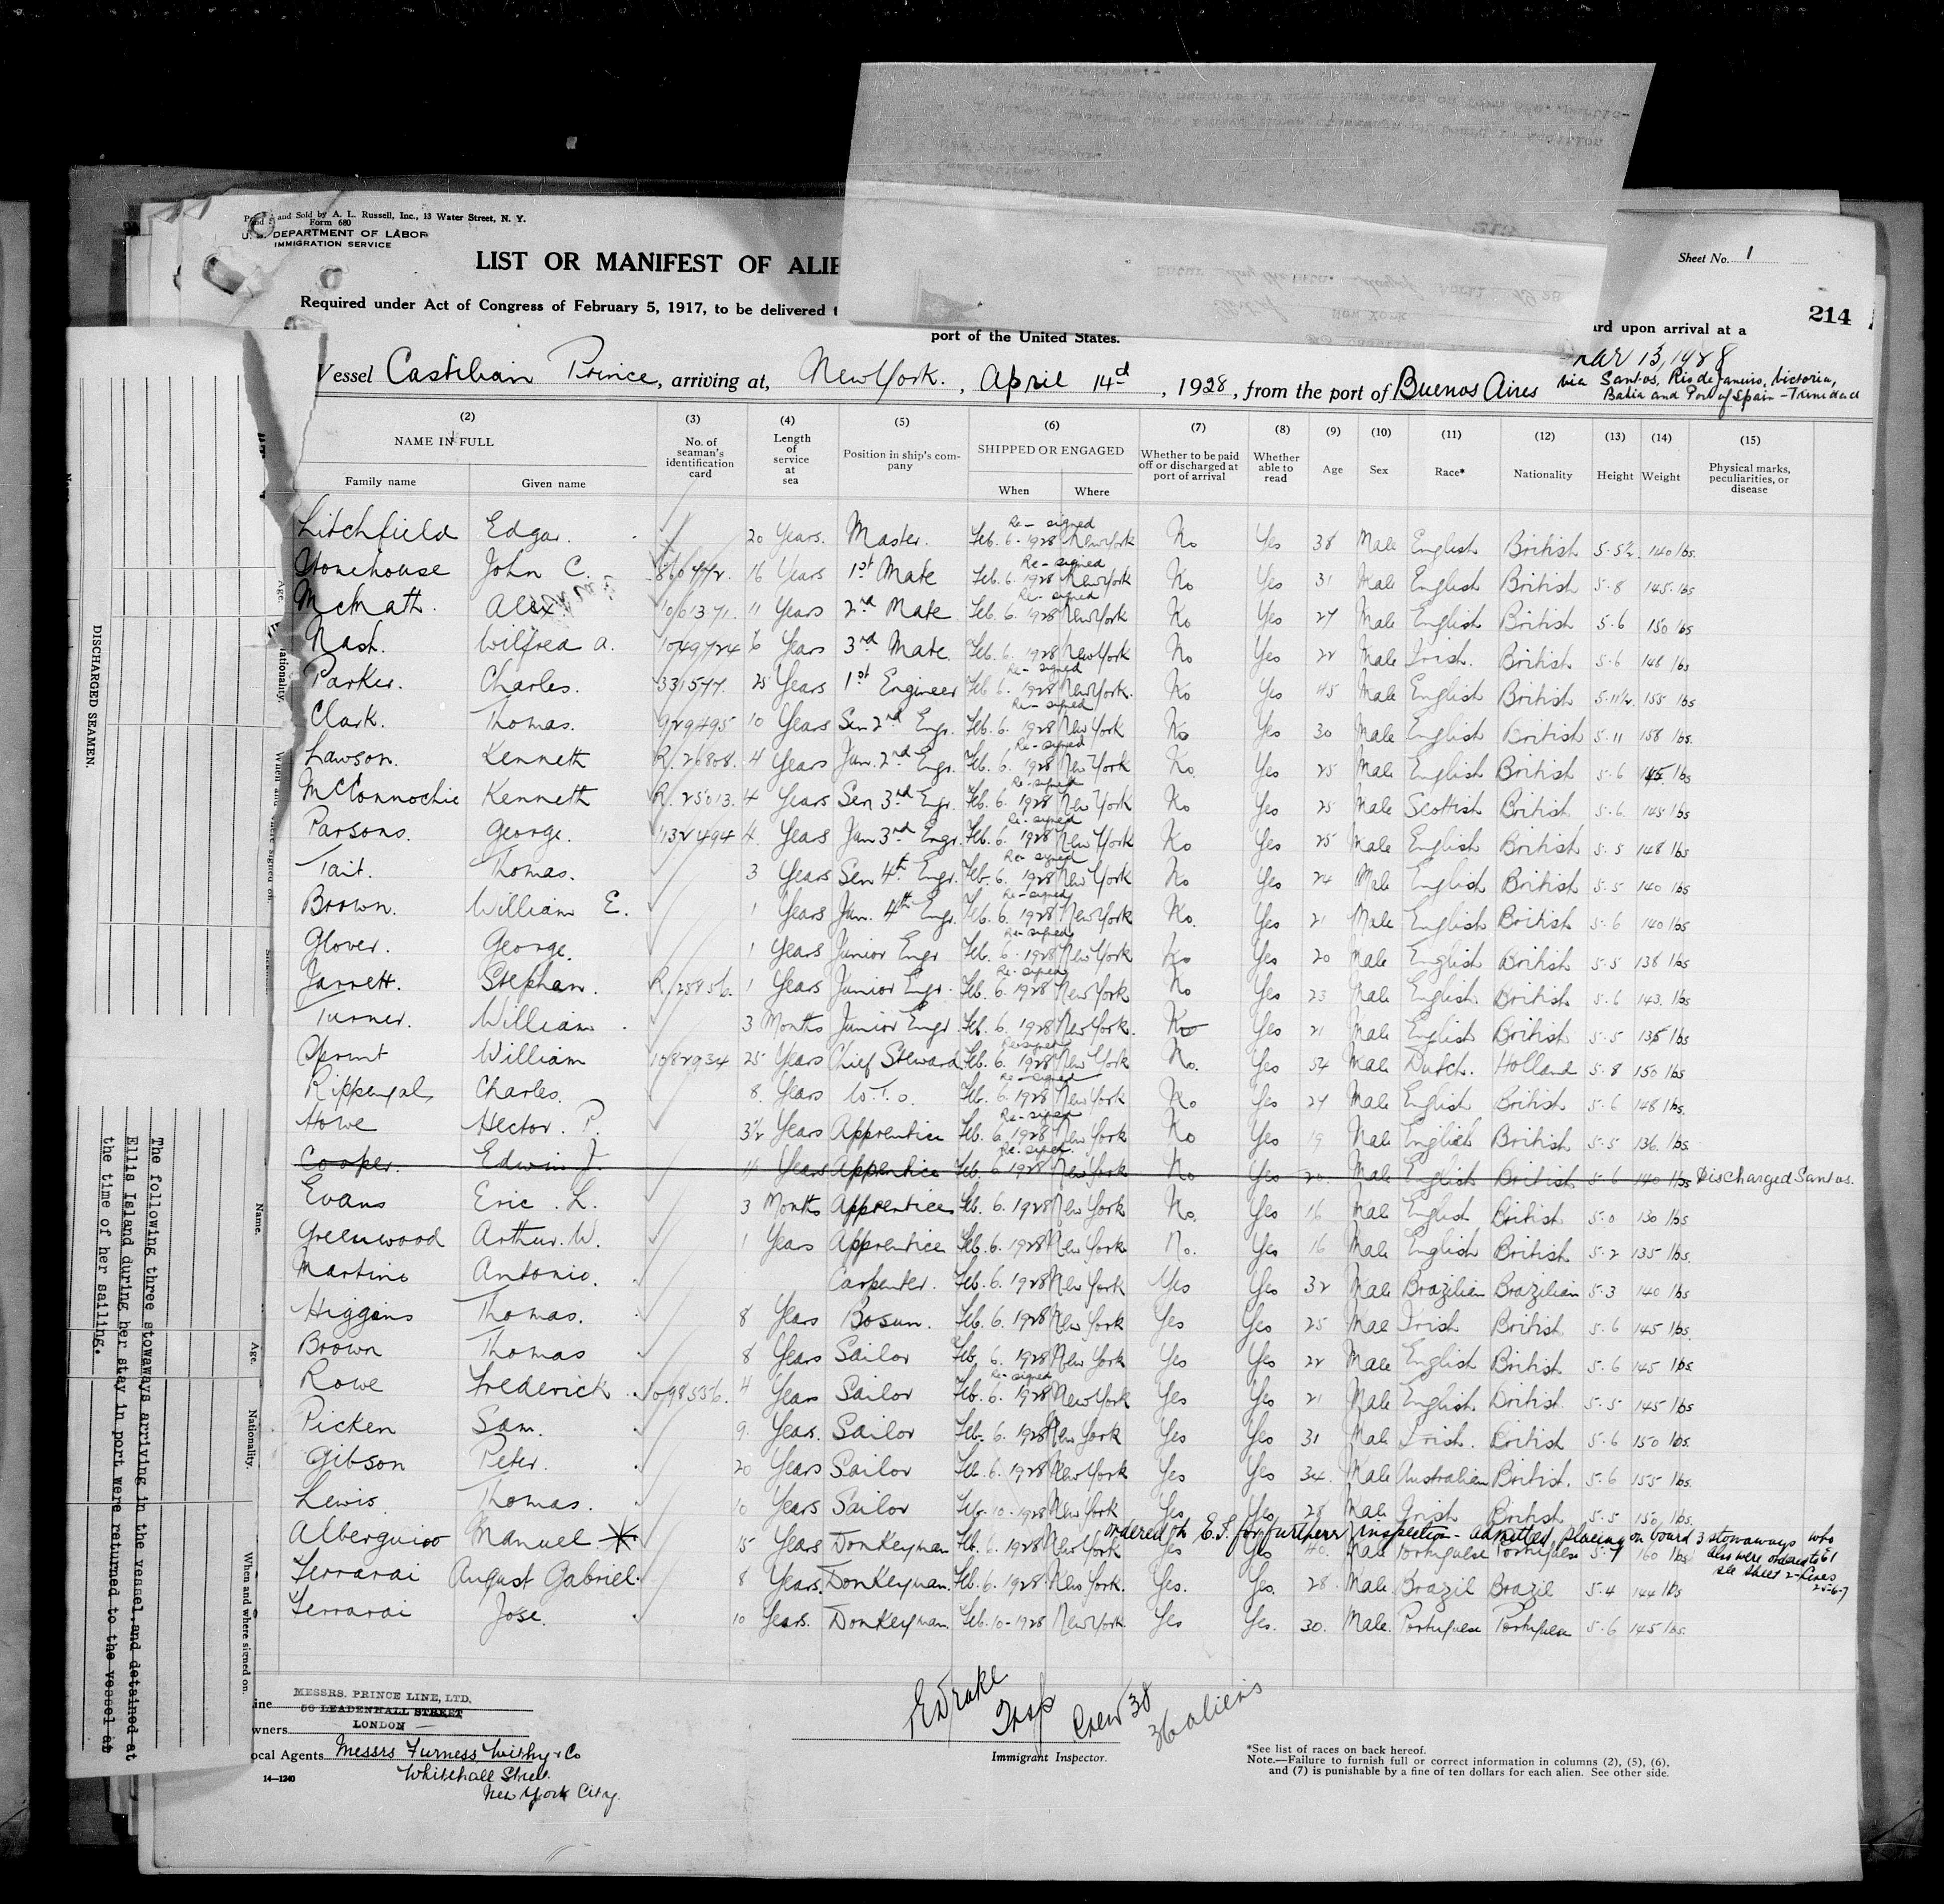 Form 680
and Sold by A. L. Russell, Inc., 13 Water Street, N. Y.
DEPARTMENT OF LABOR
IMMIGRATION SERVICE
LIST OR MANIFEST OF ALIE
Sheet No. 1
Required under Act of Congress of February 5, 1917, to be delivered
ard upon arrival at a
214
port of the United States.
Mar 13, 1928
Vessel Castilian Prince, arriving at, New York., April 14th, 1928, from the port of Buenos Aires
via Santos, Rio de Janeiro, Victoria,
Bahia and Port of Spain - Trinidad
(2) (3) (4) (5) (6) (7) (8) (9) (10) (11) (12) (13) (14) (15)
NAME IN FULL No. of seaman's identification card Length of service at sea Position in ship's company SHIPPED OR ENGAGED Whether to be paid off or discharged at port of arrival Whether able to read Age Sex Race* Nationality Height Weight Physical marks, peculiarities, or disease
Family name Given name When Where
Litchfield Edgar. 20 Years. Master. Feb. 6 - 1928 Re-signed New York No Yes 38 Male English British 5.5½ 140 lbs.
Stonehouse John C. 860772. 16 Years 1st Mate Feb. 6. 1928 Re-signed New York No Yes 31 Male English British 5.8 145. lbs
McMath. Alex 1061371. 11 Years 2nd Mate Feb. 6. 1928 Re-signed New York No Yes 27 Male English British 5.6 150 lbs
Nash. Wilfred A. 1049724 6 Years 3rd Mate Feb. 6. 1928 New York No Yes 22 Male Irish. British 5.6 148 lbs
Parker. Charles. 331577. 25 Years 1st Engineer Feb 6. 1928 Re-signed New York. No Yes 45 Male English British 5.11½. 155 lbs
Clark. Thomas. 929495 10 Years Sen 2nd Engr. Feb. 6. 1928 Re-signed New York No Yes 30 Male English British 5.11 158 lbs.
Lawson. Kenneth R. 26808. 4 Years Jun. 2nd Engr. Feb. 6. 1928 Re-signed New York No. Yes 25 Male English British 5.6 145 lbs
McConnochie Kenneth R. 25013. 4 Years Sen 3rd Engr. Feb. 6. 1928 Re-signed New York No Yes 25 Male Scottish British 5.6. 145 lbs
Parsons. George. 1132494 4. Years Jun 3rd Engr. Feb. 6. 1928 Re-signed New York No Yes 25 Male English British 5.5 148 lbs
Tait. Thomas. 3 Years Sen 4th Engr. Feb. 6. 1928 Re-signed New York No Yes 24 Male English British 5.5 140 lbs
Brown. William E. 1 Years Jun. 4th Engr. Feb. 6. 1928 Re-signed New York No. Yes 21 Male English British 5.6 140 lbs
Glover. George. 1 Years Junior Engr Feb. 6 - 1928 Re-signed New York No Yes 20 Male English British 5.5 138 lbs
Jarrett. Stephen. R. 25856. 1 Years Junior Engr. Feb. 6. 1928 Re-signed New York No Yes 23 Male English British 5.6 143. lbs
Turner. William. 3 Months Junior Engr Feb. 6. 1928 New York. No Yes 21 Male English British 5.5 135 lbs
William 1082934 25 Years Chief Steward Feb. 6. 1928 Re-signed New York No. Yes 54 Male Dutch. Holland 5.8 150 lbs
Rippengal, Charles. 8. Years W.T.O. Feb. 6. 1928 Re-signed New York No Yes 27 Male English British 5.6 148 lbs.
Howe Hector. P. 3½ Years Apprentice Feb. 6. 1928 Re-signed New York No Yes 19 Male English British 5.5 136. lbs.
Cooper. Edwin J. Years Apprentice Feb. 6 1928 Re-signed New York No Yes 20. Male English British 5.6 140 lbs Discharged Santos.
Evans Eric. L. 3 Months Apprentices Feb. 6. 1928 New York No. Yes 16 Male English British 5.0 130 lbs
Greenwood Arthur. W. 1 Years Apprentice Feb. 6. 1928 New York No. Yes 16 Male English British 5.2 135 lbs.
Martins Antonio. Carpenter. Feb. 6. 1928 New York Yes Yes 32 Male Brazilian Brazilian 5.3 140 lbs
Higgins Thomas. 8 Years Bosun. Feb. 6. 1928 New York Yes Yes 25 Male Irish British 5.6 145 lbs.
Brown Thomas 8 Years Sailor Feb, 6. 1928 New York Yes Yes 22 Male English British 5.6 145 lbs.
Rowe Frederick. 1098536. 4 Years Sailor Feb. 6. 1928 Re-signed New York Yes Yes 21 Male English British. 5.5 145 lbs
Picken Sam. 9. Years. Sailor Feb. 6. 1928 New York Yes Yes 31 Male Irish. British 5.6 150 lbs.
Gibson Peter. 20 Years Sailor Feb. 6. 1928 New York Yes Yes 34. Male Australian British. 5.6 155 lbs.
Lewis Thomas. 10 Years Sailor Feb. 10 - 1928 New York Yes Yes 28 Male Irish British 5.5 150 lbs.
ordered to E.I. for further inspection - admitted placing on board 3 stowaways who
also were ordered to EI
see sheet 2 - lines
25-6-7
Manuel * 15 Years Donkeyman Feb. 6. 1928 New York Yes Yes 40. Male Portuguese Portuguese 5.7 160 lbs
Ferrarai August Gabriel. 8 Years. Donkeyman. Feb. 6. 1928 New York. Yes. Yes. 28. Male. Brazil Brazil 5.4 144 lbs
Ferrarai Jose. 10 Years. Donkeyman. Feb. 10 - 1928 New York. Yes Yes. 30. Male. Portuguese Portuguese 5.6 145 lbs.
ine MESSRS. PRINCE LINE, LTD.
56 LEADENHALL STREET
wners LONDON
ocal Agents Messrs Furness Withy & Co
Whitehall Street
New York City.
14-1240
Insp
Crew 38
36 aliens
Immigrant Inspector.
*See list of races on back hereof.
Note.—Failure to furnish full or correct information in columns (2), (5), (6),
and (7) is punishable by a fine of ten dollars for each alien. See other side.
DISCHARGED SEAMEN.
Age.
Nationality.
Name.
Age.
Nationality.
When and where signed on.
The following three stowaways arriving in the vessel and detained at
Ellis Island during her stay in port were returned to the vessel at
the time of her sailing.